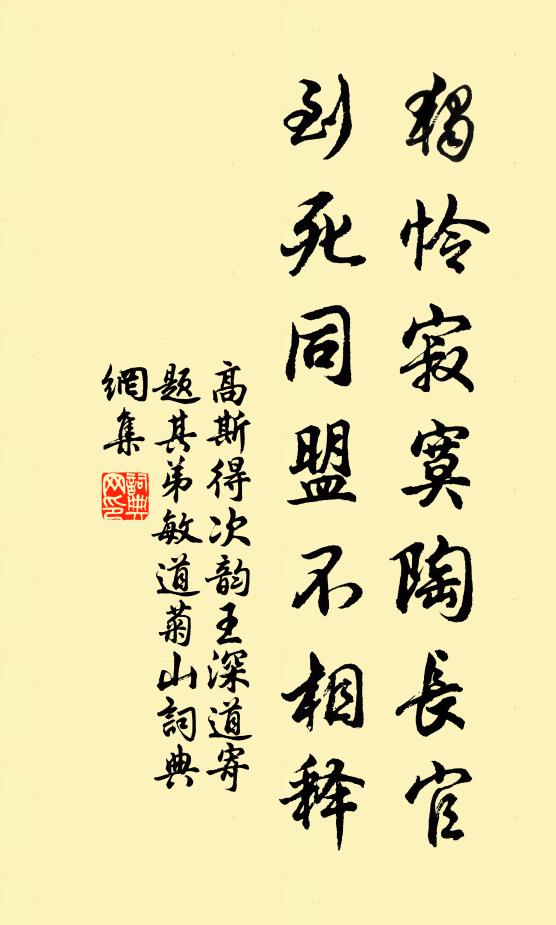 獨怜寂寞陶長官
到死同盟不相释
高斯得次韵王深道寄
題其弟敏道菊山詞典
網集
詞典网印